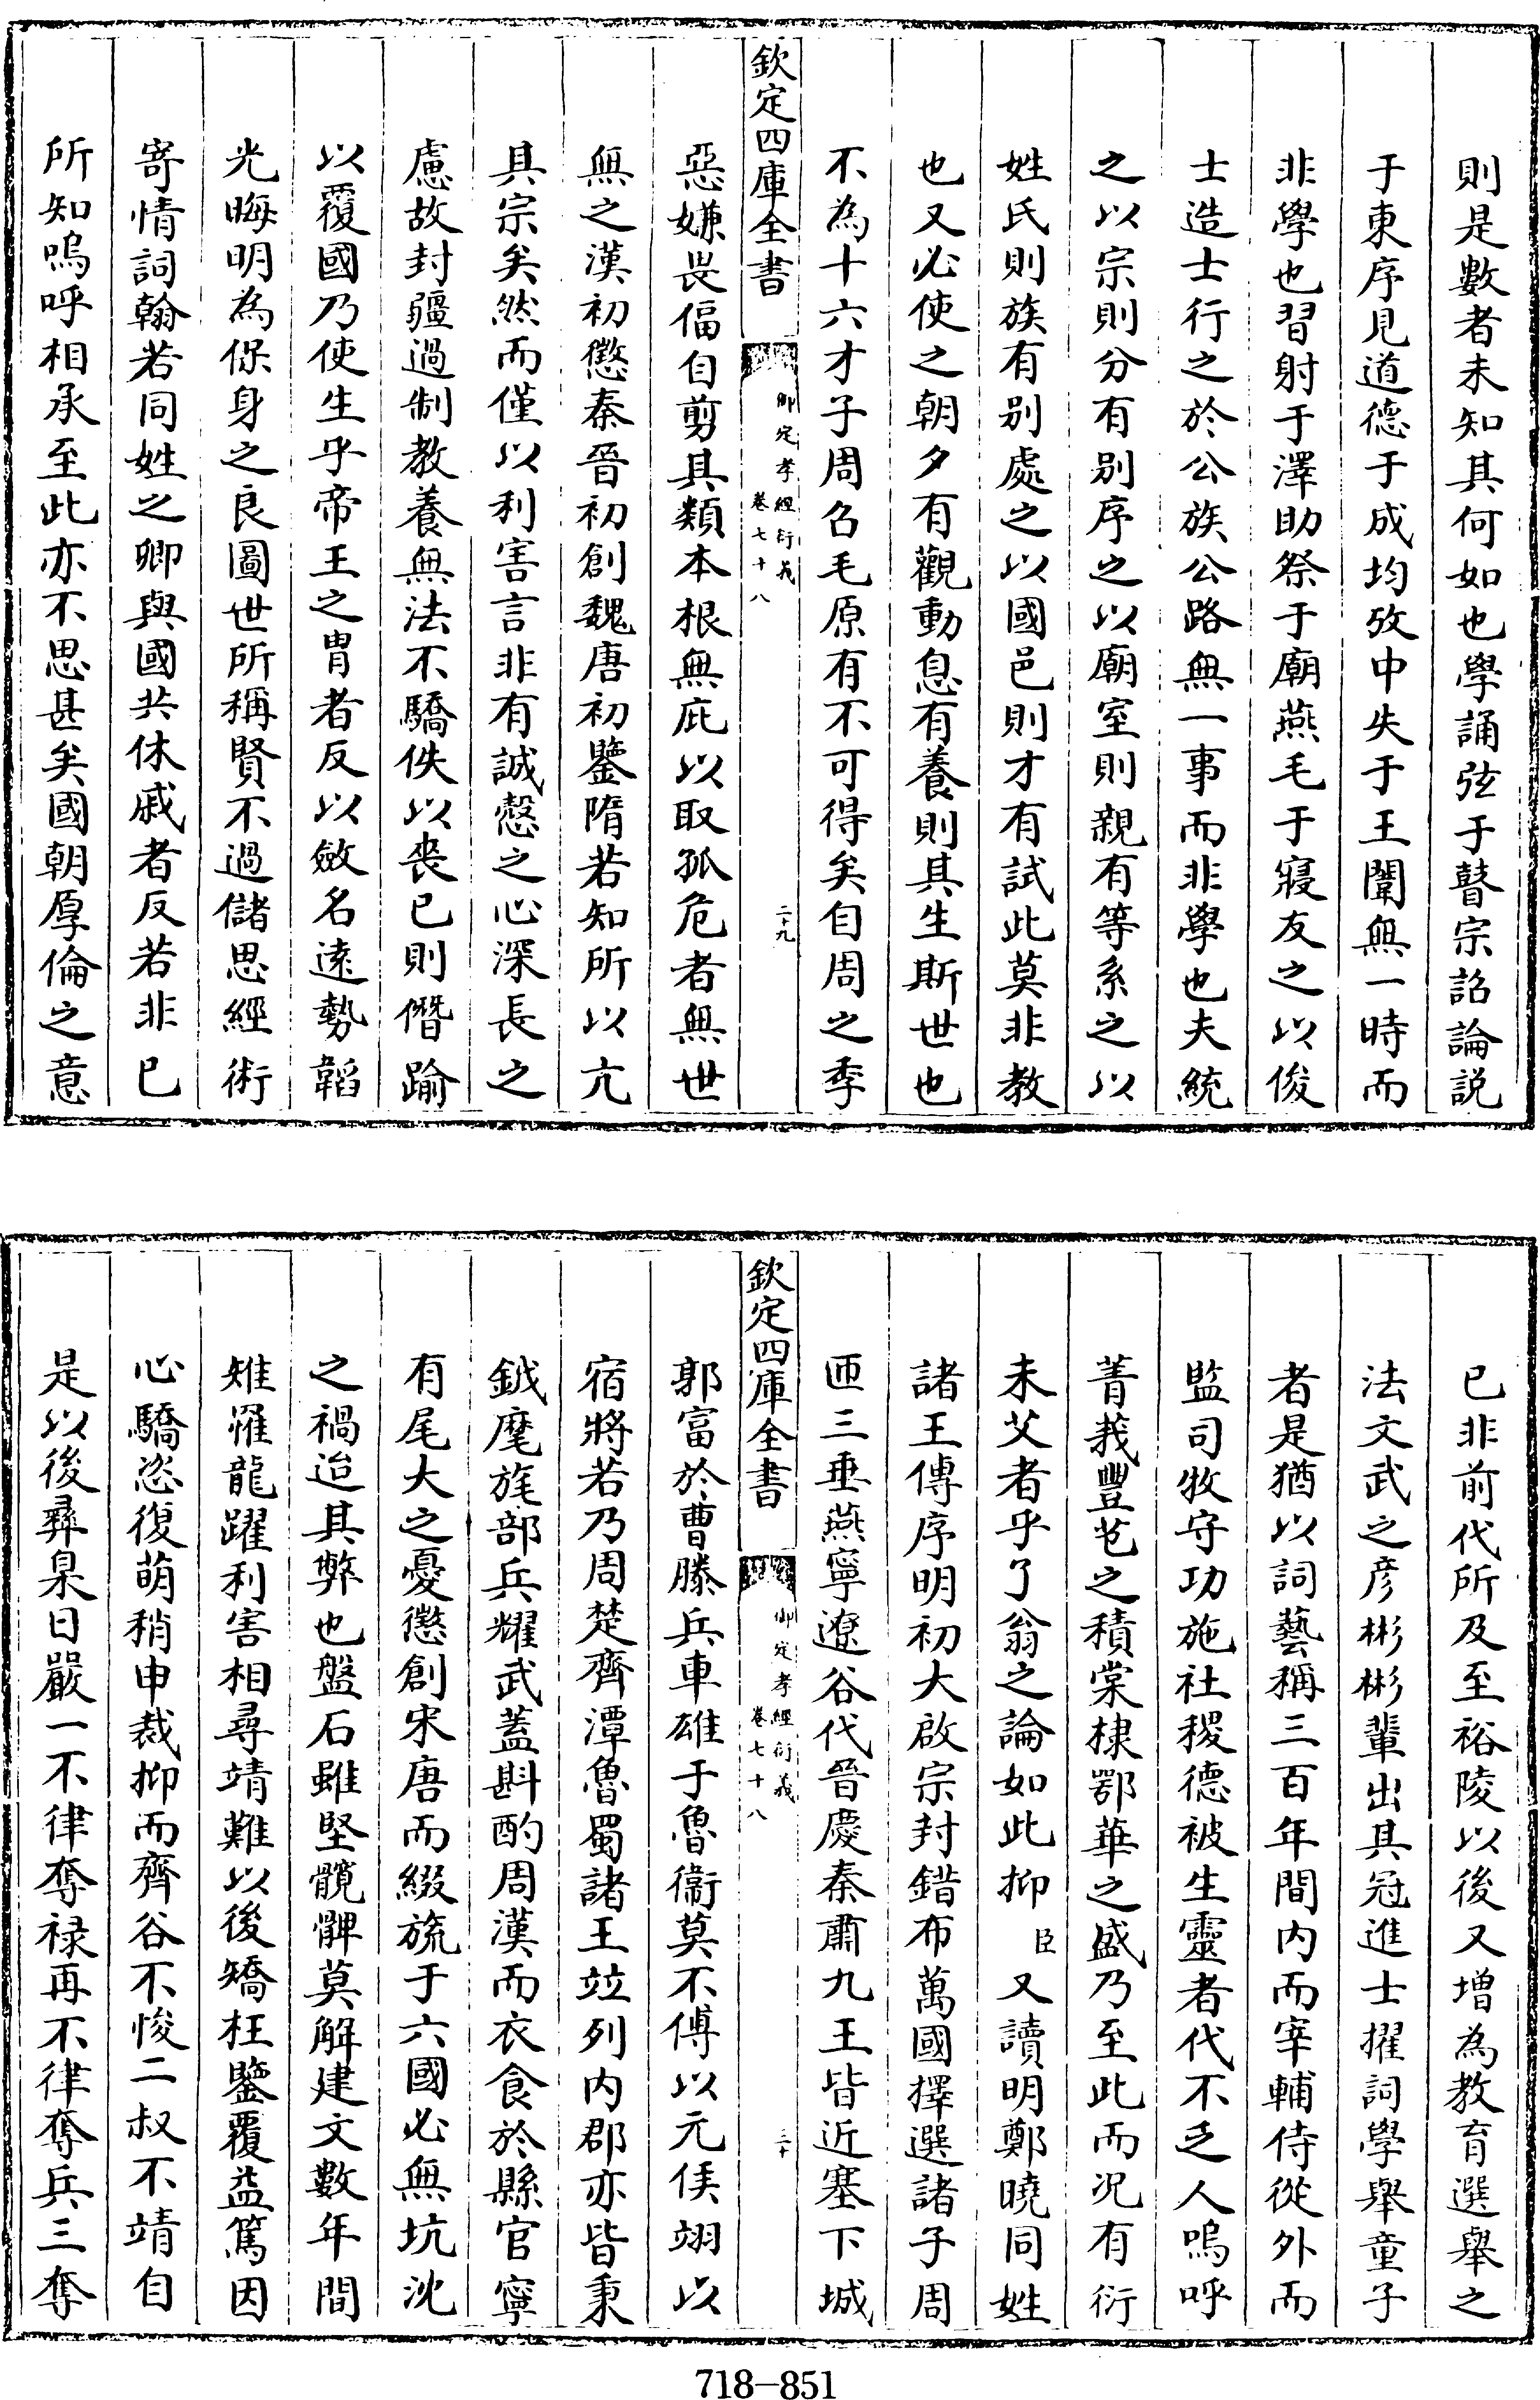 則是數者未知其何如也學誦弦于瞽宗詔論説
于東序見道德于成均攷中失于王闈無一時而
非學也習射于澤助祭于廟燕毛于寢友之以俊
士造士行之於公族公路無一事而非學也夫統
之以宗則分有别序之以廟室則親有等系之以
姓氏則族有别處之以國邑則才有試此莫非教
也又必使之朝夕有觀動息有養則其生斯世也
不為十六才子周召毛原有不可得矣自周之季
欽定四庫全書
御定孝經衍義
卷七十八
二十九
惡嫌畏偪自剪其類本根無庇以取孤危者無世
無之漢初懲秦晉初創魏唐初鑒隋若知所以亢
具宗矣然而僅以利害言非有誠慤之心深長之
慮故封疆過制教養無法不驕佚以喪已則僭踰
以覆國乃使生乎帝王之胄者反以斂名遠勢韜
光晦明為保身之良圖世所稱賢不過儲思經術
寄情詞翰若同姓之卿與國共休戚者反若非已
所知嗚呼相承至此亦不思甚矣國朝厚倫之意
已非前代所及至裕陵以後又増為教育選舉之
法文武之彦彬彬輩出其冠進士擢詞學舉童子
者是猶以詞藝稱三百年間内而宰輔侍從外而
監司牧守功施社稷德被生靈者代不乏人嗚呼
菁莪豐芑之積棠棣鄂華之盛乃至此而况有衍
未艾者乎了翁之論如此抑臣又讀明鄭曉同姓
諸王傳序明初大啟宗封錯布萬國擇選諸子周
匝三垂燕寧遼谷代晉慶秦肅九王皆近塞下城
欽定四庫全書
御定孝經衍義
卷七十八
三十
郭富於曹滕兵車雄于魯衞莫不傅以元侯翊以
宿將若乃周楚齊潭魯蜀諸王竝列内郡亦皆秉
鉞麾旄部兵耀武蓋斟酌周漢而衣食於縣官寧
有尾大之憂懲創宋唐而綴旒于六國必無坑沈
之禍迨其弊也盤石雖堅髖髀莫解建文數年間
雉罹龍躍利害相尋靖難以後矯枉鑒覆益篤因
心驕恣復萌稍申裁抑而齊谷不悛二叔不靖自
是以後彛臬日嚴一不律奪禄再不律奪兵三奪
718—851